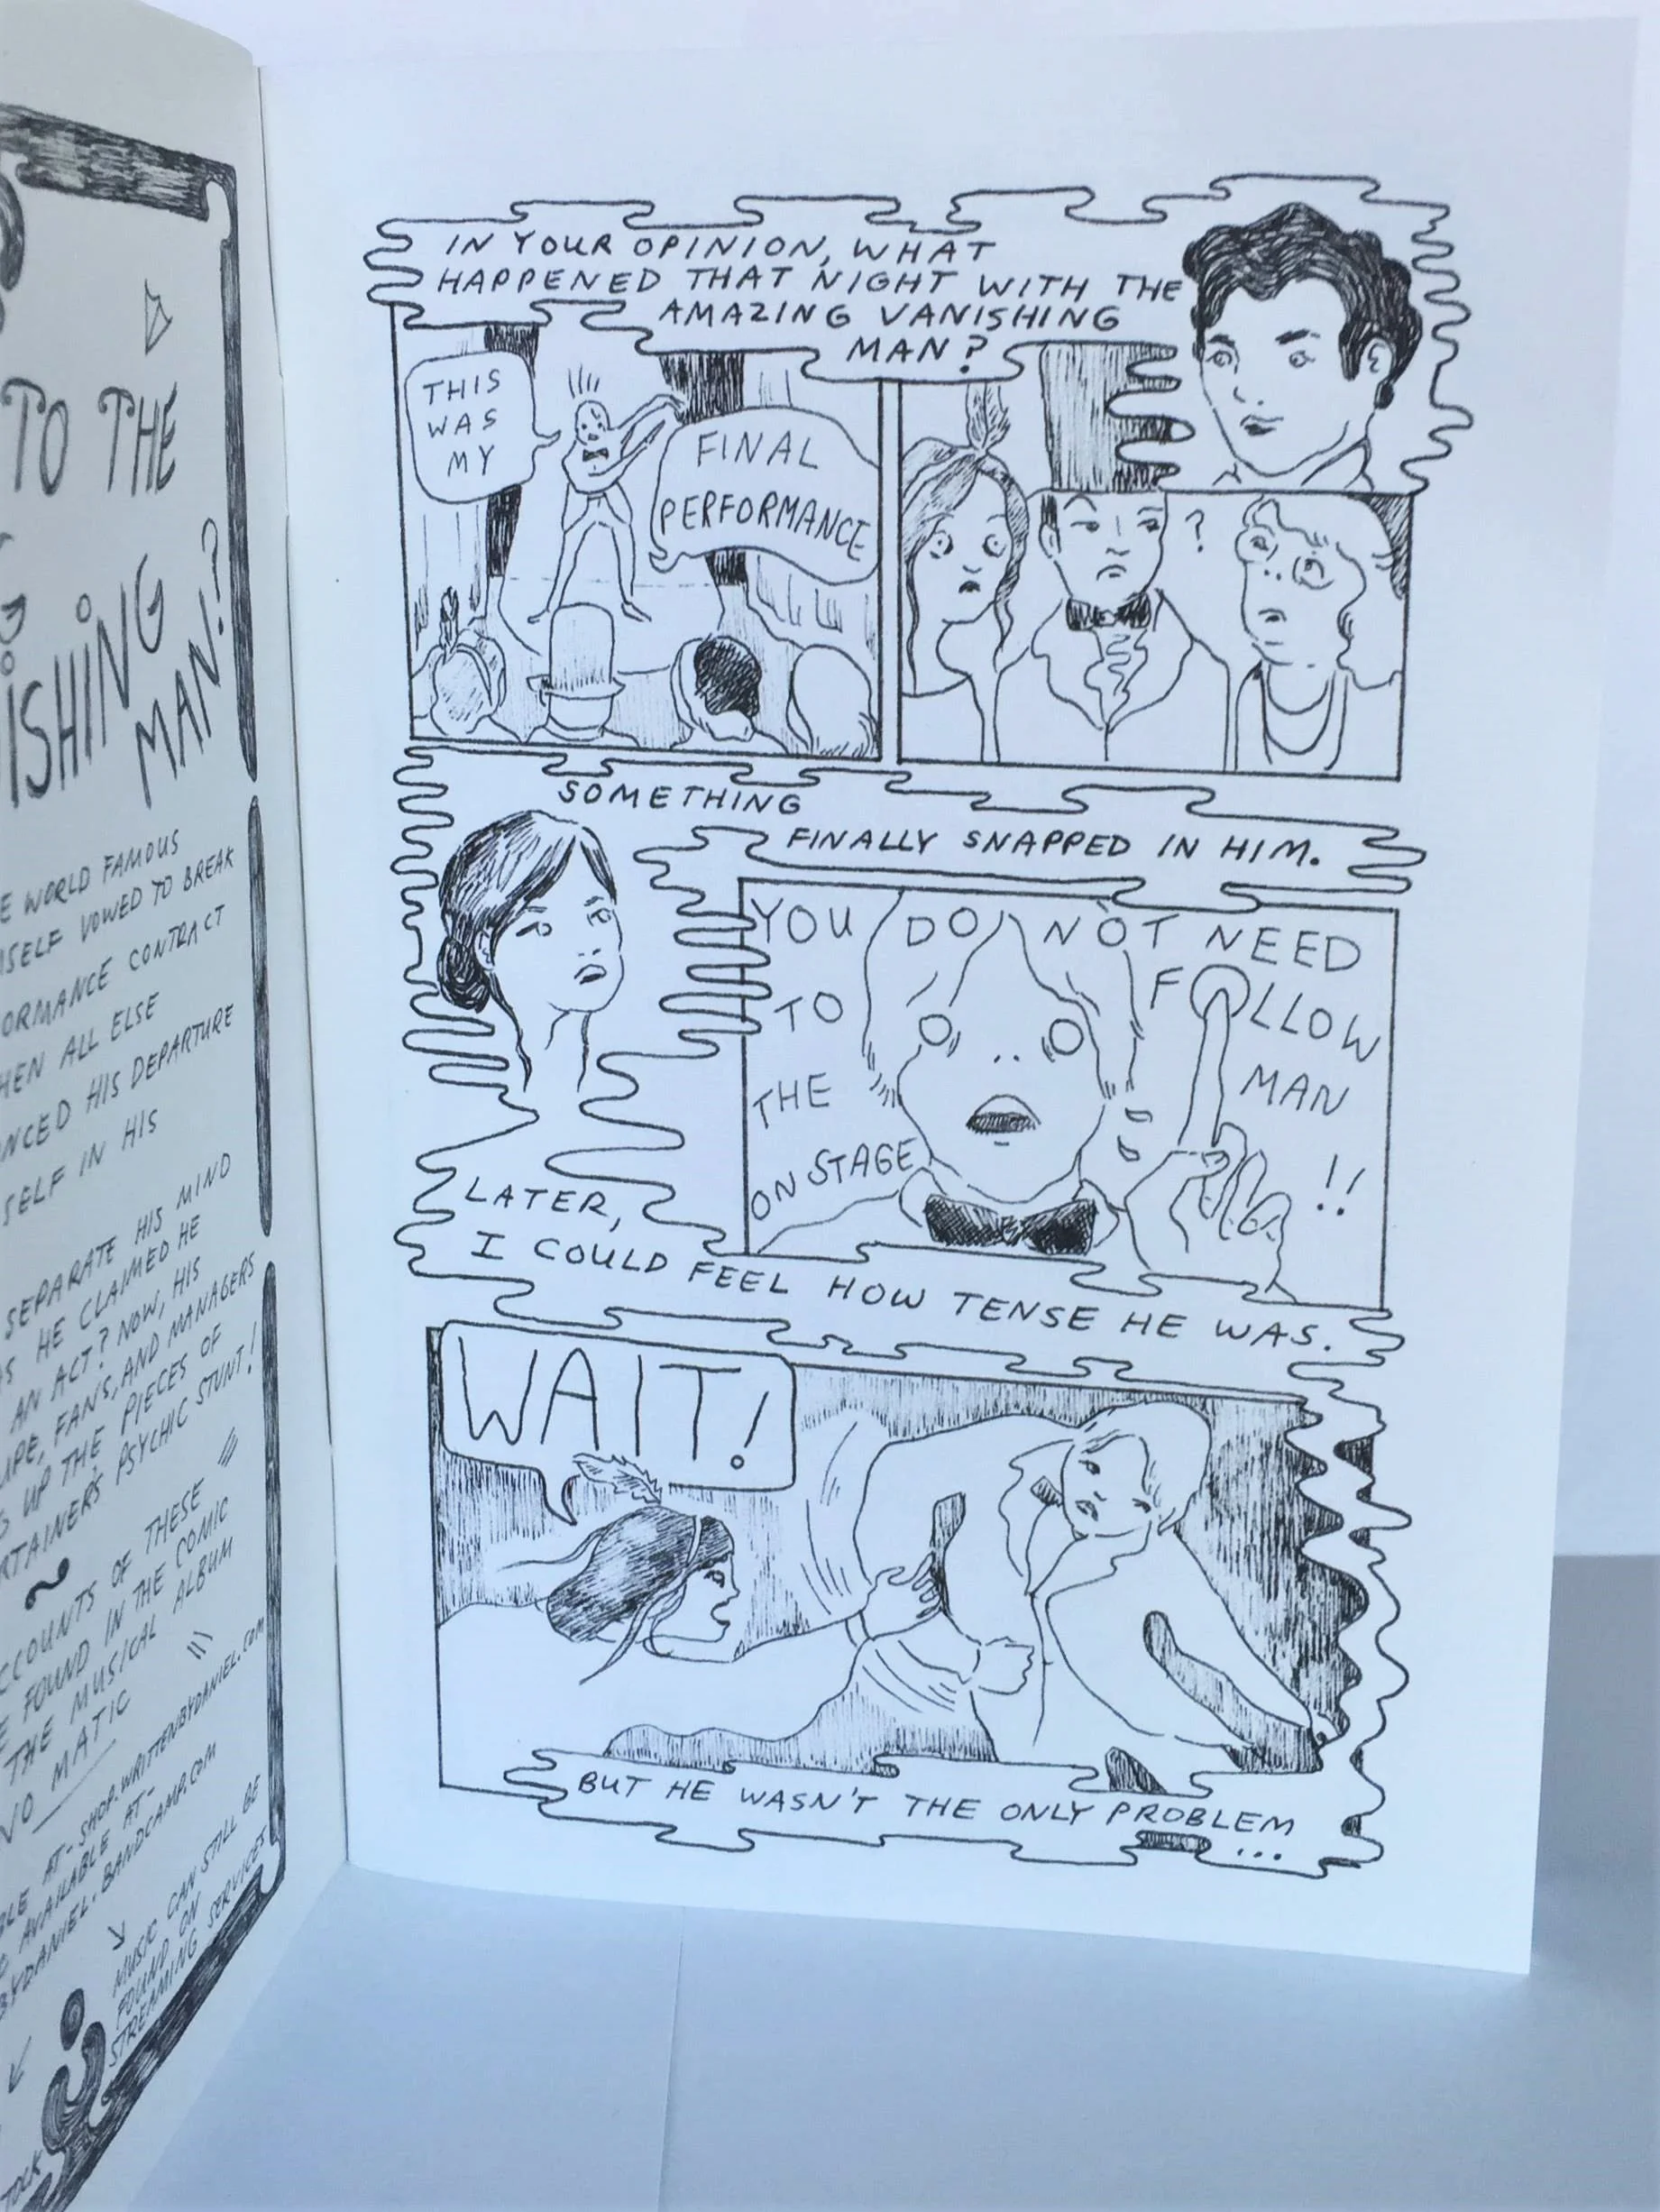 TO THE
ISHING
MAN?
E WORLD FAMOUS
SELF VOWED TO BREAK
ORMANCE CONTRACT
HEN ALL ELSE
NCED HIS DEPARTURE
SELF IN HIS
SEPARATE HIS MIND
AS HE CLAIMED HE
AN ACT? NOW, HIS
FANS, AND MANAGERS
UP THE PIECES OF
RTAINER'S PSYCHIC STUNT!
CCOUNTS OF THESE
FOUND IN THE COMIC
THE MUSICAL ALBUM
MATIC
AT- SHOP.WRITTENBYDANIEL.COM
AVAILABLE AT-
BYDANIEL.BANDCAMP.COM
MUSIC CAN STILL BE
FOUND ON
STREAMING SERVICES
TOCK
IN YOUR OPINION, WHAT
HAPPENED THAT NIGHT WITH THE
AMAZING VANISHING
MAN?
THIS
WAS
MY
FINAL
PERFORMANCE
?
SOMETHING
FINALLY SNAPPED IN HIM.
YOU DO NOT NEED
TO FOLLOW
THE MAN
ON STAGE !!
LATER,
I COULD FEEL HOW TENSE HE WAS.
WAIT!
BUT HE WASN'T THE ONLY PROBLEM
...